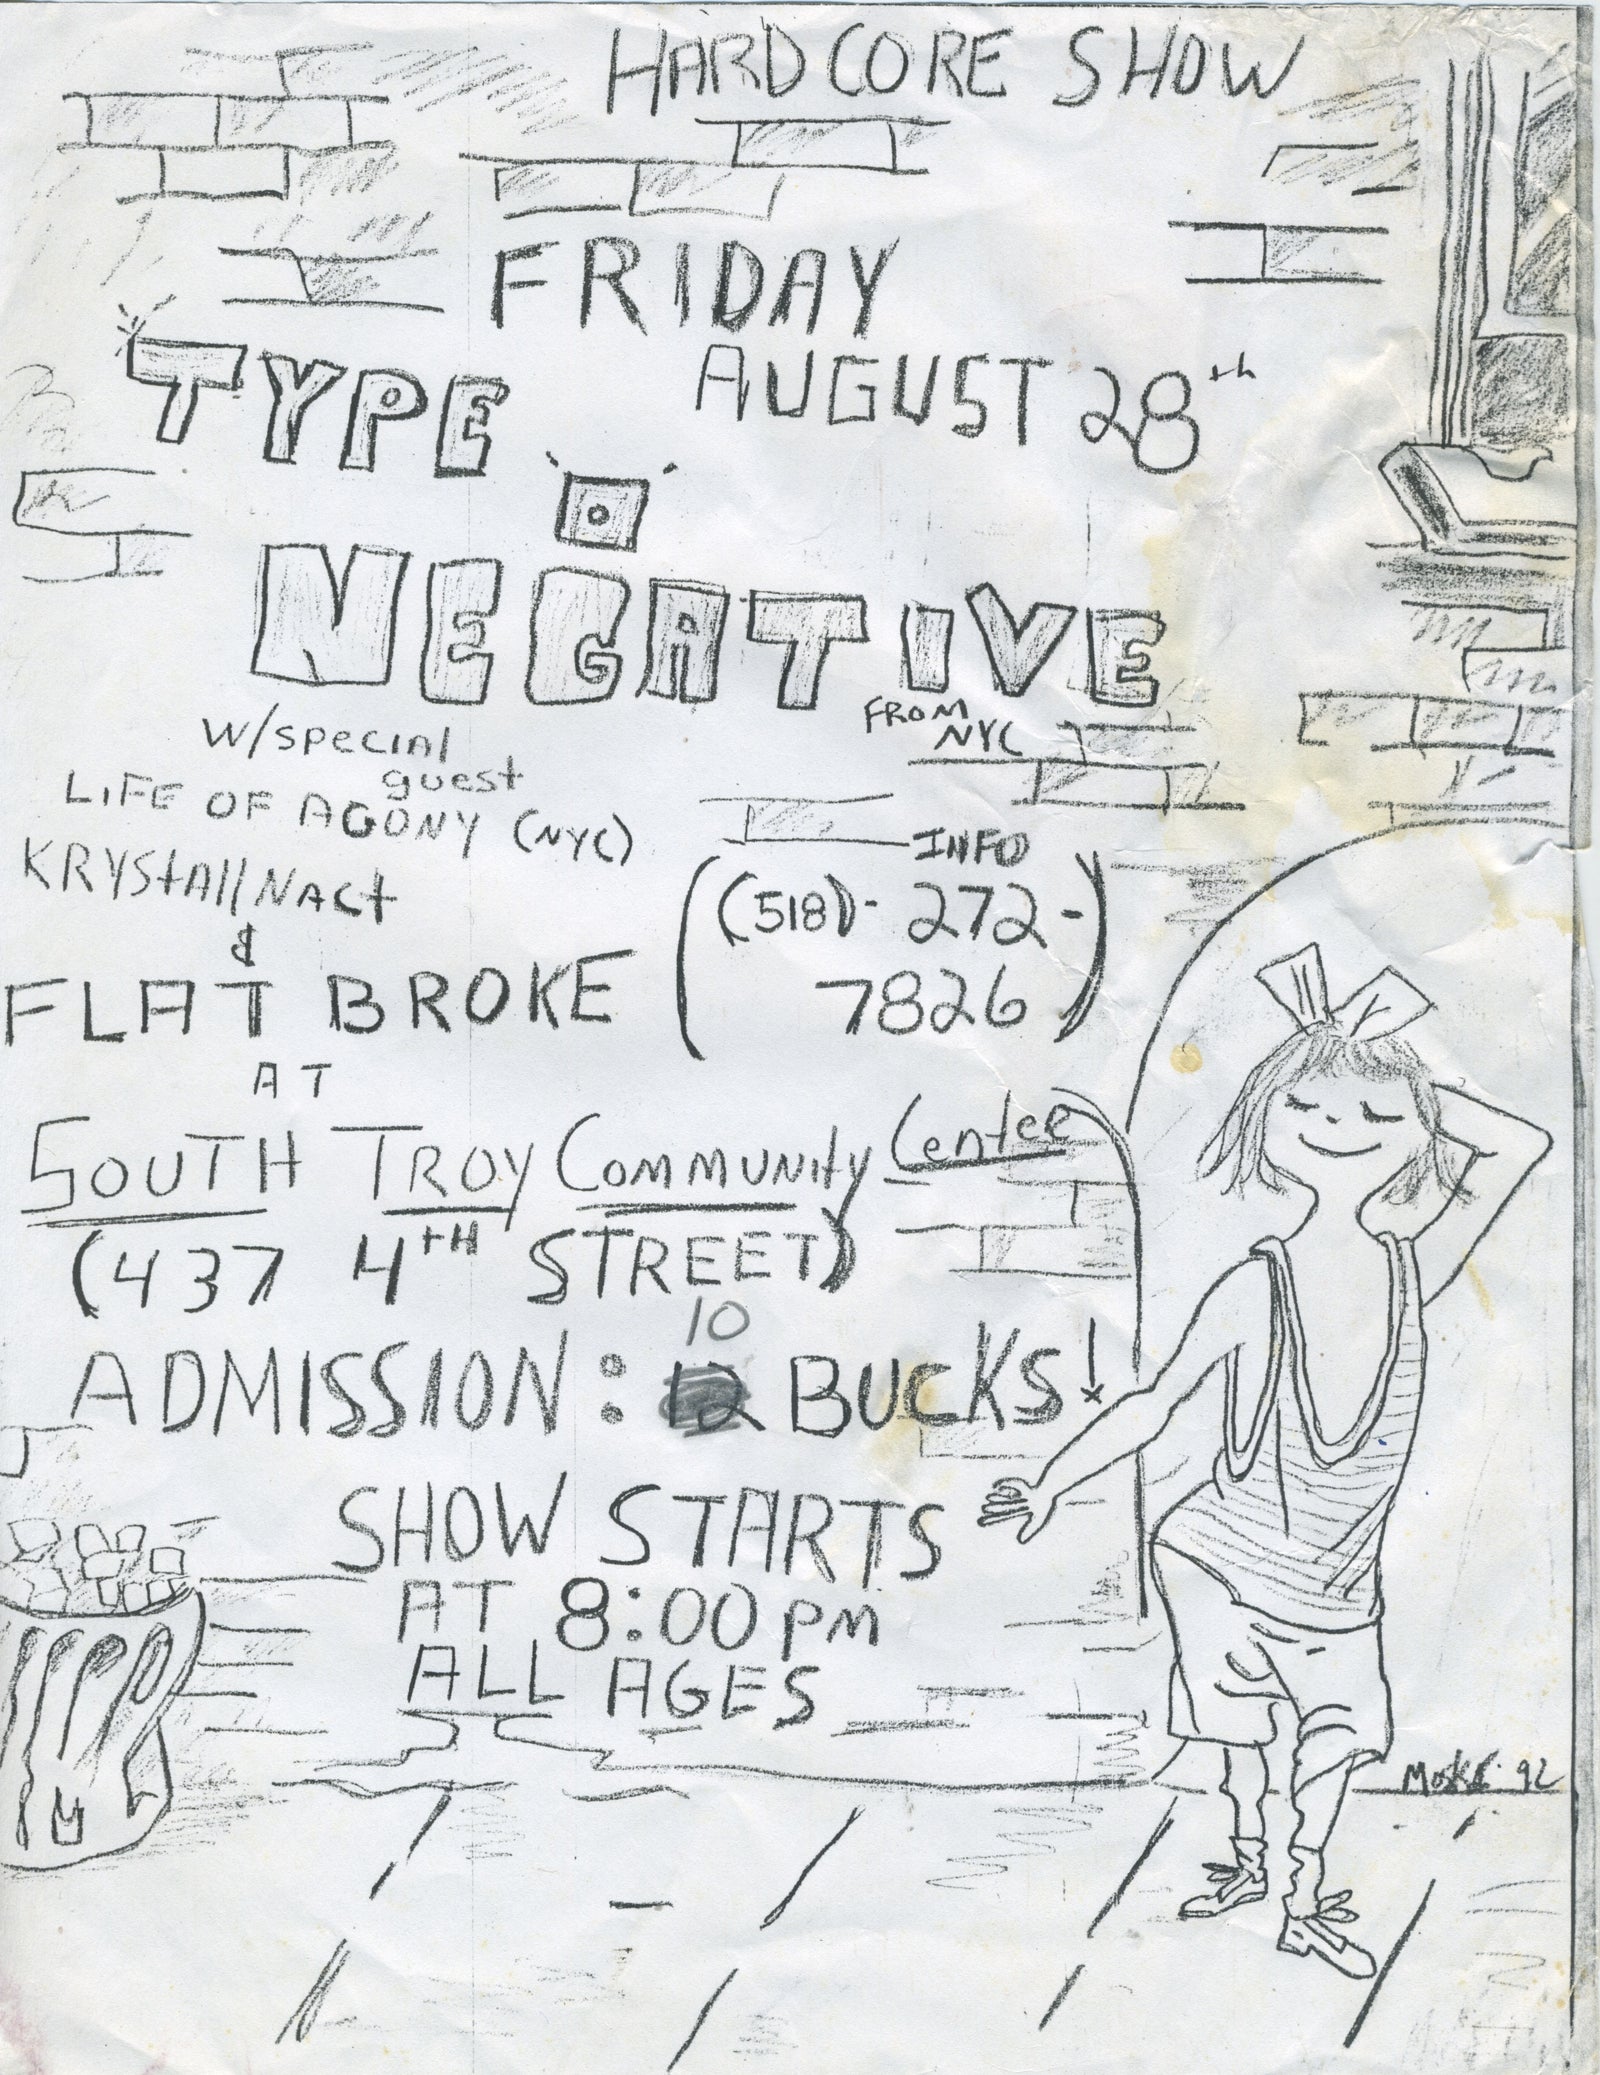 HARDCORE SHOW
FRIDAY
AUGUST 28th
TYPE
O
NEGATIVE
FROM
NYC
W/special
guest
LIFE OF AGONY (NYC)
KRYStAllNAct
&
FLAT BROKE
INFO
((518)- 272-
7826)
AT
SOUTH TROY COMMUNITY Center
(437 4TH STREET)
10
ADMISSION: 12 BUCKS!
SHOW STARTS
AT 8:00 PM
ALL AGES
92